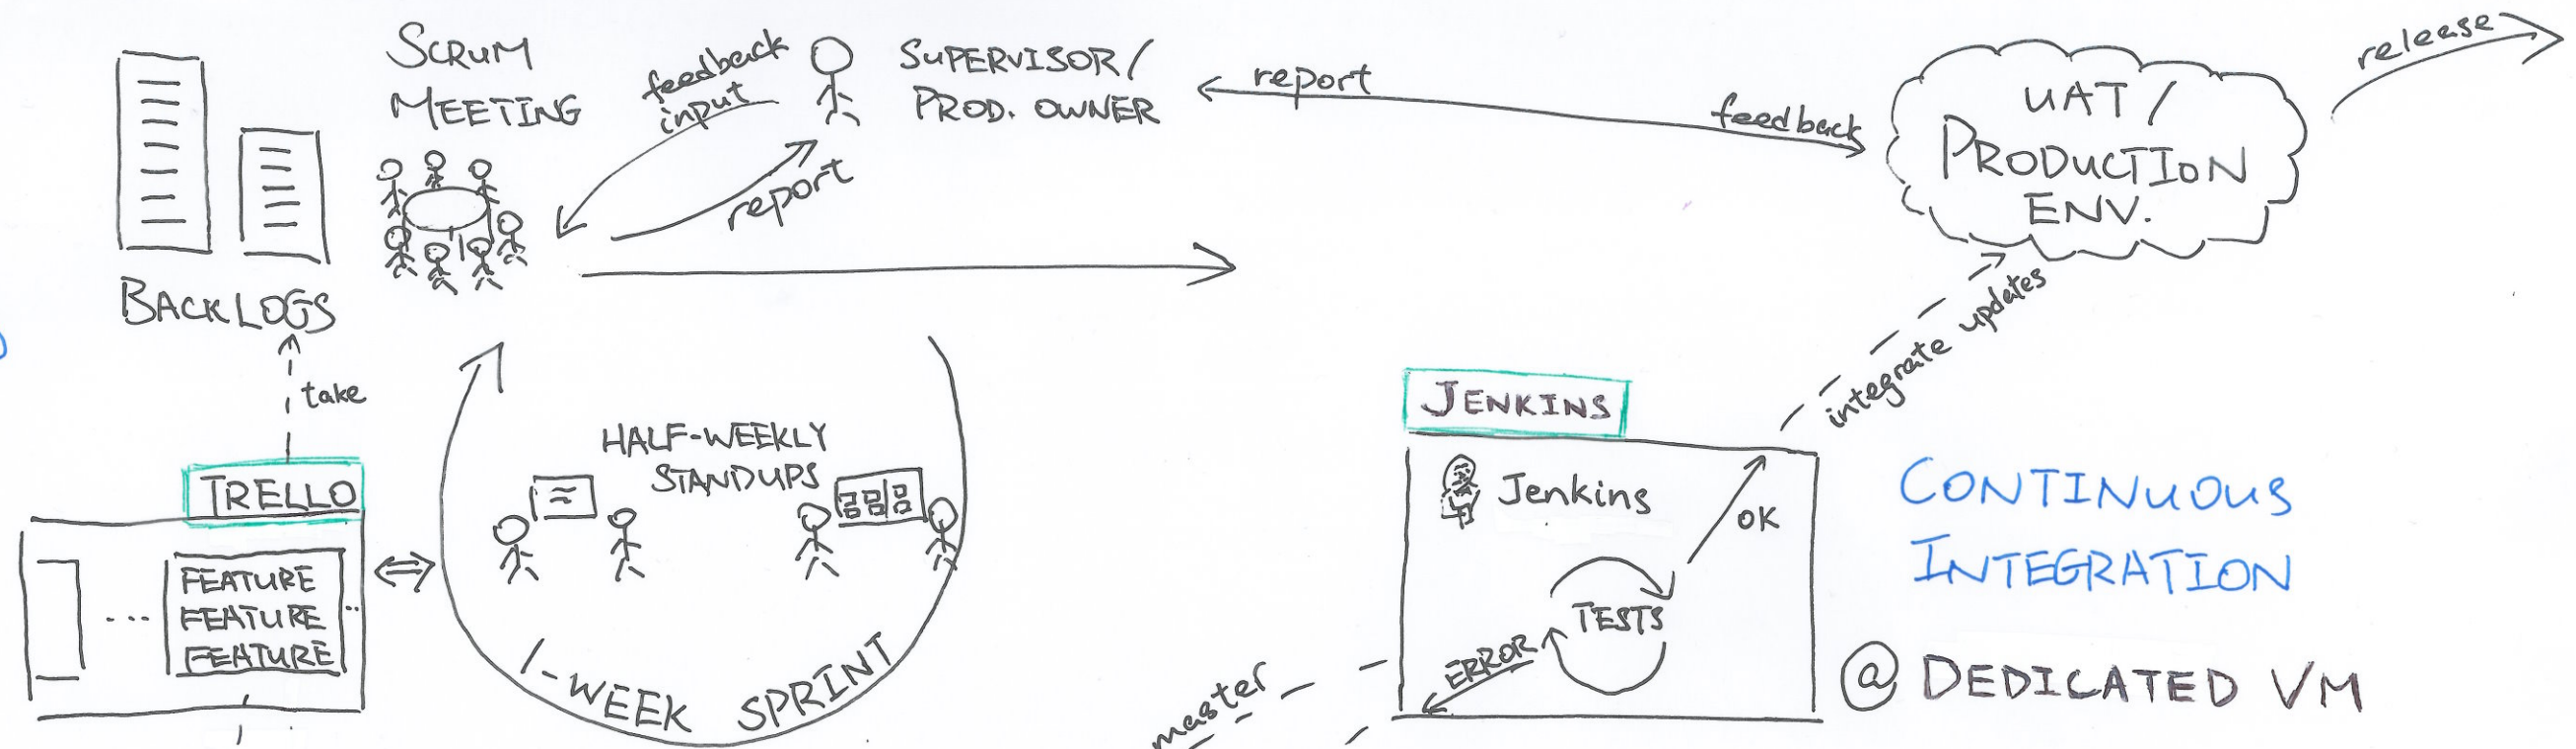 SCRUM
MEETING
feedback
input
report
SUPERVISOR/
PROD. OWNER
report
feedback
UAT/
PRODUCTION
ENV.
release
BACKLOGS
take
TRELLO
FEATURE
...
FEATURE
FEATURE
HALF-WEEKLY
STANDUPS
1-WEEK SPRINT
integrate updates
JENKINS
Jenkins
OK
TESTS
ERROR
master
CONTINUOUS
INTEGRATION
@ DEDICATED VM